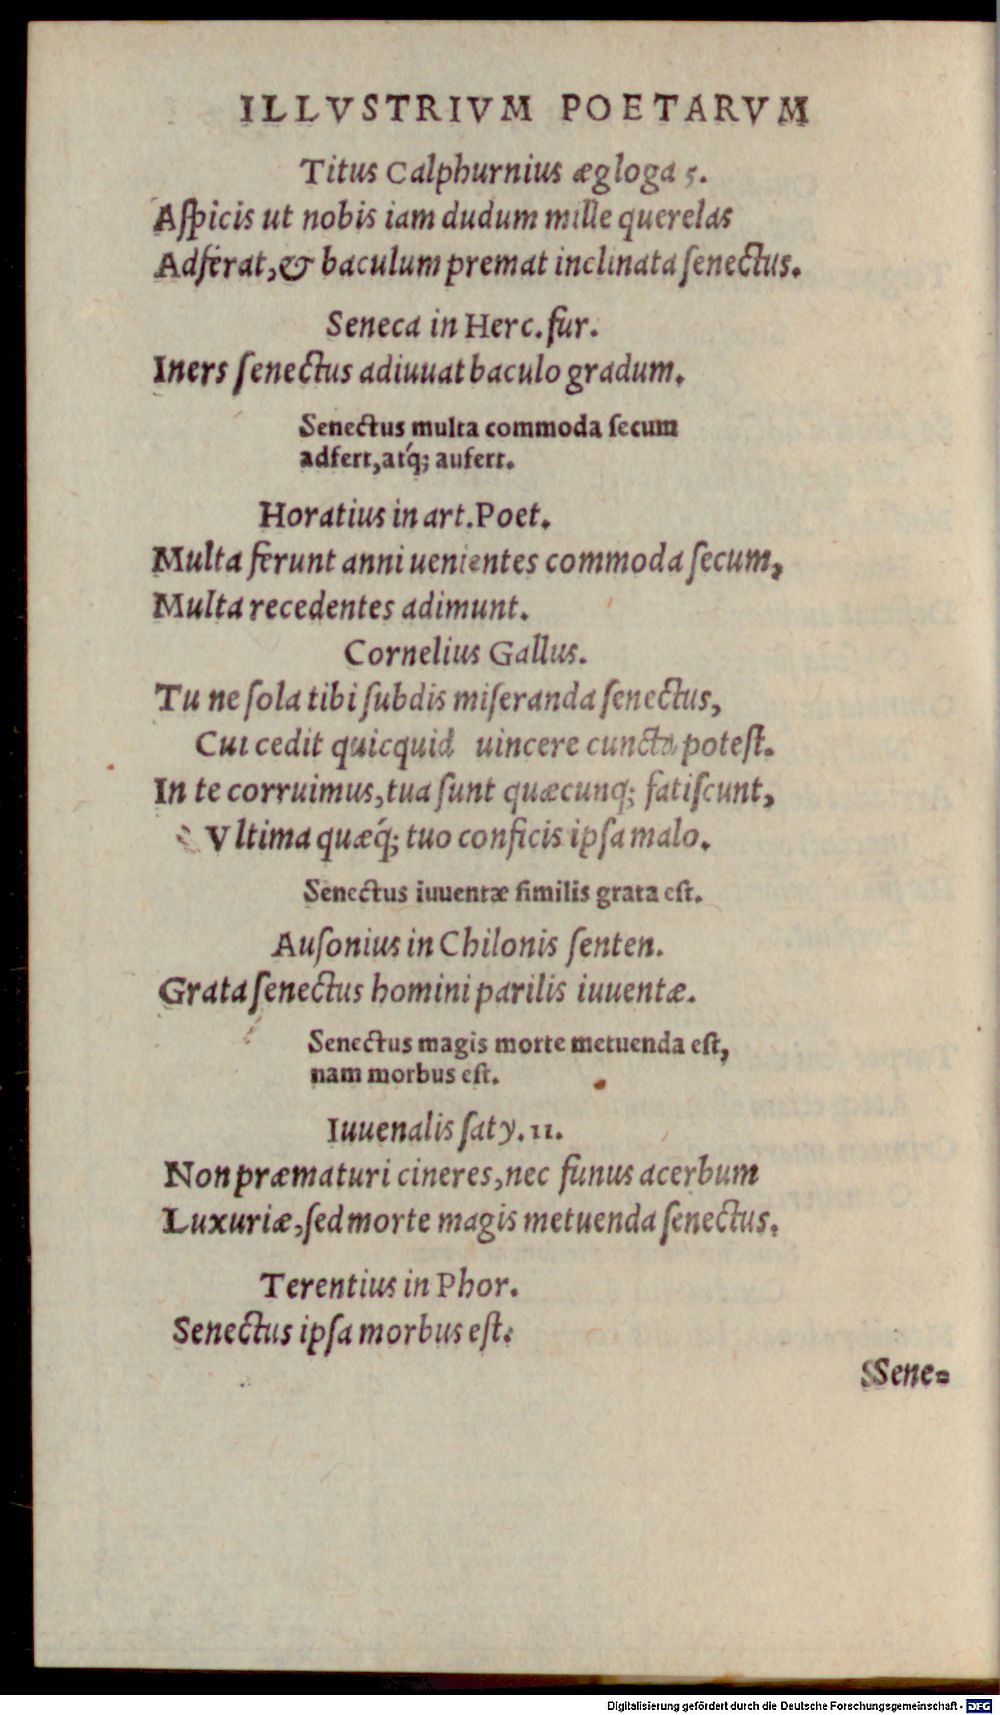 ILLVSTRIVM POETARVM
Titus Calphurnius ægloga 5.
Aſpicis ut nobis iam dudum mille querelas
Adferat,& baculum premat inclinata ſenectus.
Seneca in Herc.fur.
Iners ſenectus adiuuat baculo gradum.
Senectus multa commoda ſecum
adfert,atq́; aufert.
Horatius in art.Poet.
Multa ferunt anni uenientes commoda ſecum,
Multa recedentes adimunt.
Cornelius Gallus.
Tu ne ſola tibi ſubdis miſeranda ſenectus,
Cui cedit quicquid uincere cuncta poteſt.
In te corruimus,tua ſunt quæcunq; fatiſcunt,
Vltima quæq́; tuo conficis ipſa malo.
Senectus iuuentæ ſimilis grata eſt.
Auſonius in Chilonis ſenten.
Grata ſenectus homini parilis iuuentæ.
Senectus magis morte metuenda eſt,
nam morbus eſt.
Iuuenalis ſaty.11.
Non præmaturi cineres,nec funus acerbum
Luxuriæ,ſed morte magis metuenda ſenectus.
Terentius in Phor.
Senectus ipſa morbus eſt.
Sene-
Digitalisierung gefördert durch die Deutsche Forschungsgemeinschaft - DFG